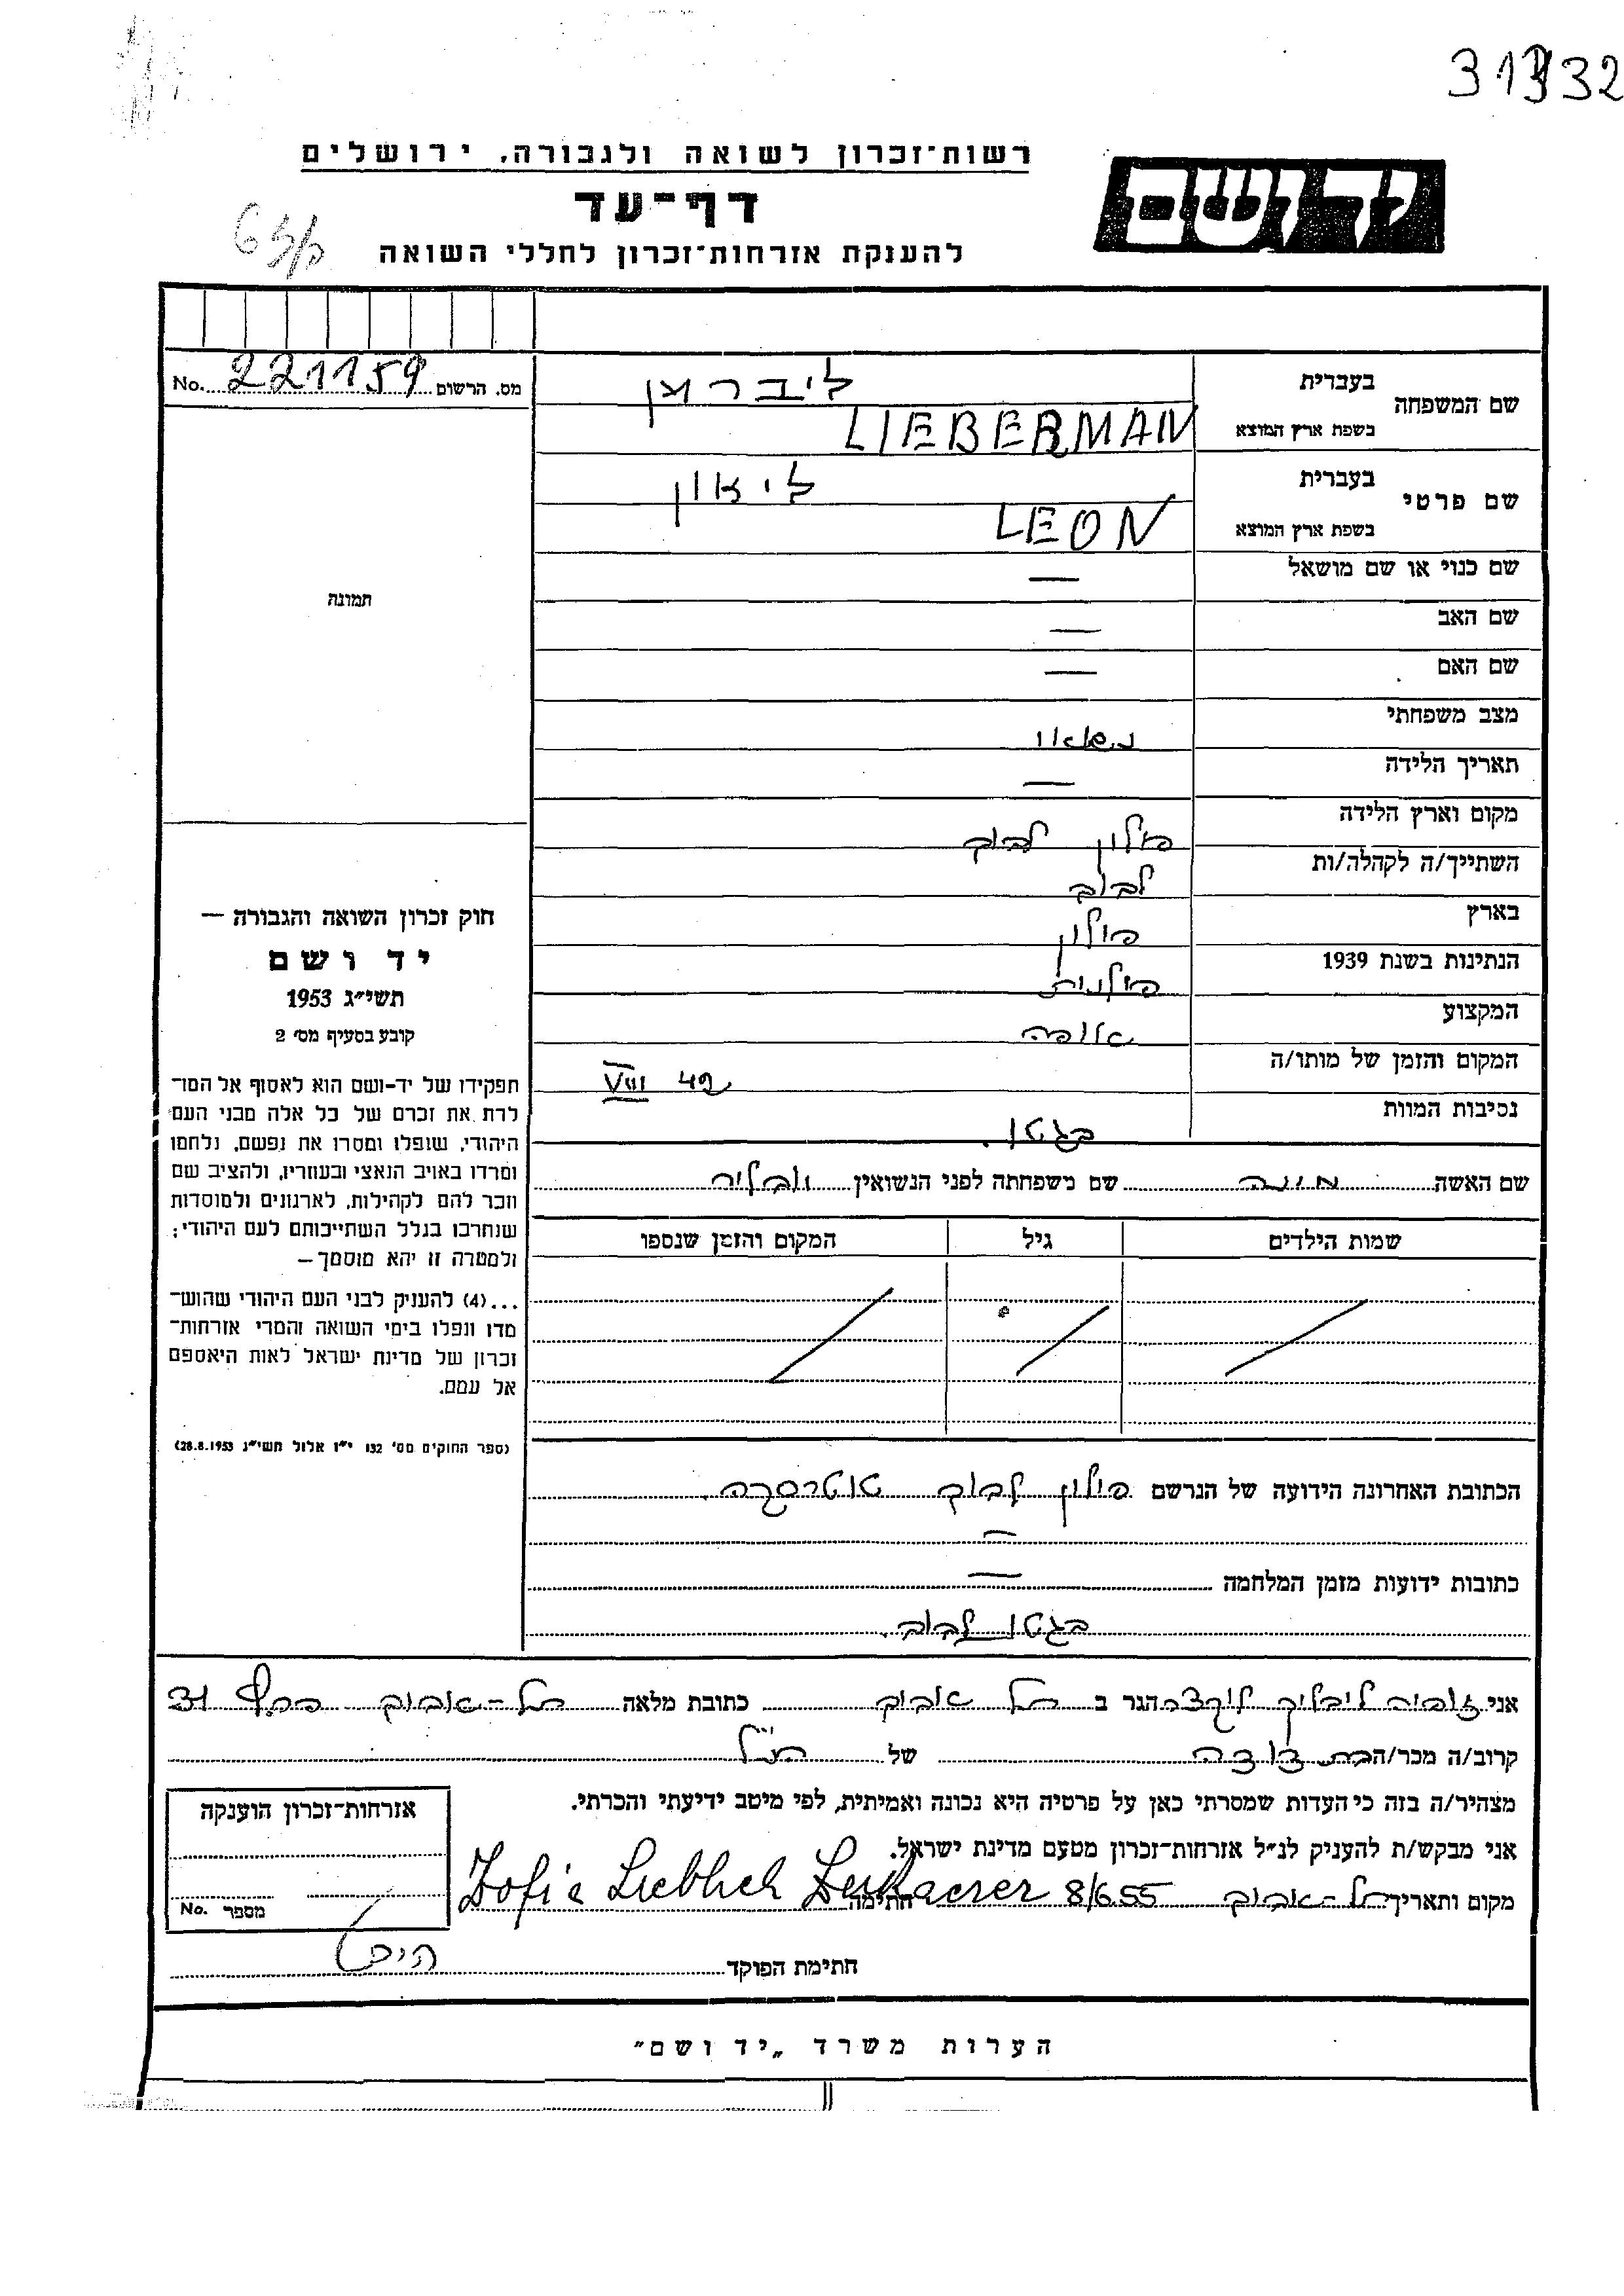 רשות־זכרון לשואה ולגבורה, ירושלים
יד ושם
דף־עד
להענקת אזרחות־זכרון לחללי השואה
מס. הרשום 221159 No.
שם המשפחה
בעברית ליברמן
בשפת ארץ המוצא LIEBERMAN
שם פרטי
בעברית ליאון
בשפת ארץ המוצא LEON
שם כנוי או שם מושאל —
שם האב —
שם האם —
מצב משפחתי נשאוי
תאריך הלידה —
מקום וארץ הלידה פולין לבוב
השתייך/ה לקהלה/ות לבוב
בארץ פולין
הנתינות בשנת 1939 פולנית
המקצוע אופה
המקום והזמן של מותו/ה VIII 42
נסיבות המוות בגטו.
שם האשה שם משפחתה לפני הנשואין
שמות הילדים גיל המקום והזמן שנספו
הכתובת האחרונה הידועה של הנרשם פולין לבוב
—
כתובות ידועות מזמן המלחמה —
בגטו לבוב.
תמונה
חוק זכרון השואה והגבורה —
יד ושם
תשי״ג 1953
קובע בסעיף מס׳ 2
תפקידו של יד-ושם הוא לאסוף אל המו־
לדת את זכרם של כל אלה מבני העם
היהודי, שנפלו ומסרו את נפשם, נלחמו
ומרדו באויב הנאצי ובעוזריו, ולהציב שם
וזכר להם לקהילות, לארגונים ולמוסדות
שנחרבו בגלל השתייכותם לעם היהודי;
ולמטרה זו יהא מוסמך —
...(4) להעניק לבני העם היהודי שהוש־
מדו ונפלו בימי השואה והמרי אזרחות־
זכרון של מדינת ישראל לאות היאספם
אל עמם.
(ספר החוקים מס׳ 132 י״ז אלול תשי״ג 28.8.1953)
אני זופיה ליבליך הגר ב תל אביב כתובת מלאה תל-אביב
קרוב/ה מכר/ה בת דודה של הנ״ל
מצהיר/ה בזה כי העדות שמסרתי כאן על פרטיה היא נכונה ואמיתית, לפי מיטב ידיעתי והכרתי.
אני מבקש/ת להעניק לנ״ל אזרחות־זכרון מטעם מדינת ישראל.
מקום ותאריך תל-אביב 8/6.55 חתימה Zofia
אזרחות־זכרון הוענקה
מספר No.
חתימת הפוקד
הערות משרד „יד ושם״